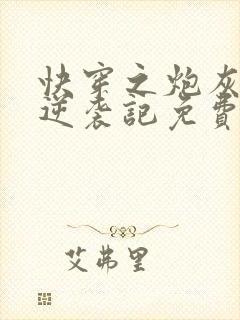 快穿之炮灰
逆袭記免費
艾弗里